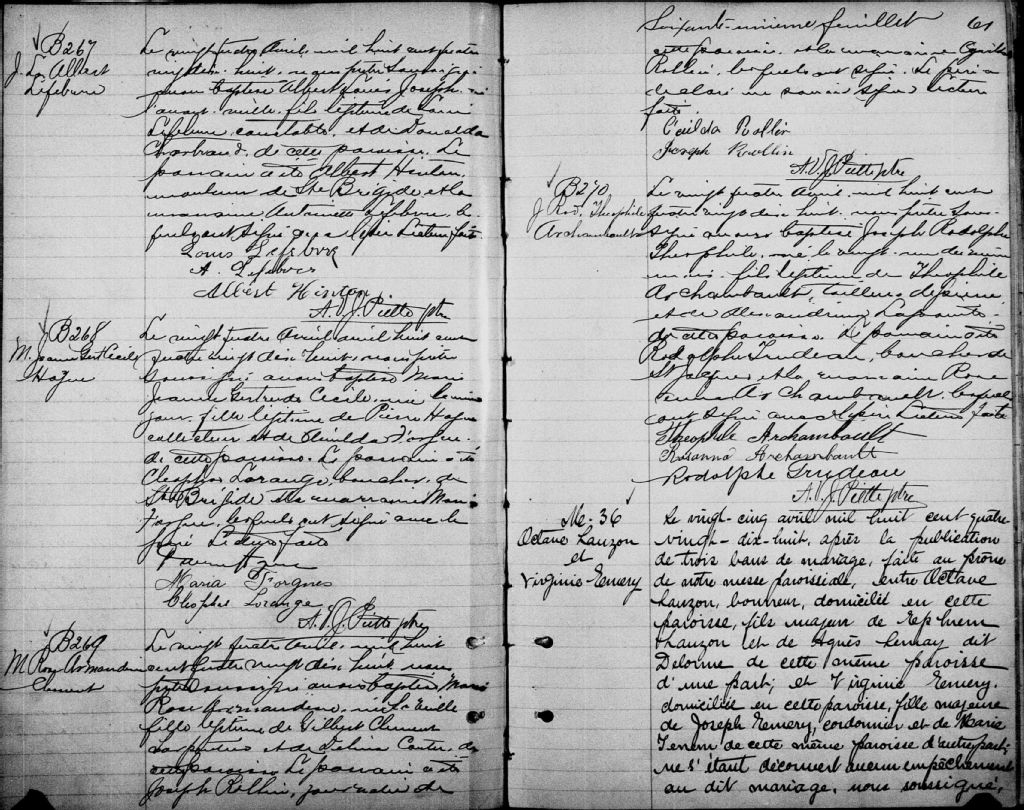 B267
J. Ls Albert
Lefebvre
Le vingt quatre Avril, mil huit cent quatre
vingt dix-huit, nous prêtre soussigné
avons baptisé Albert Louis Joseph, né
l'avant-veille, fils légitime de Louis
Lefebvre, constable, et de Donalda
de cette paroisse. Le
parrain a été Albert Hinton,
mouleur de Ste Brigide et la
marraine Antoinette Lefebvre, les-
quels ont signé avec le père. Lecture faite.
Louis Lefebvre
A. Lefebvre
Albert Hinton
A.V.J. Piette ptre
B268
M. Jeanne Gert Cécile
Le vingt quatre Avril mil huit cent
quatre vingt dix huit, nous prêtre
soussigné avons baptisé Marie
Jeanne Gertrude Cécile, née le même
jour, fille légitime de Pierre
collecteur et de
de cette paroisse. Le parrain a été
Cléophas Lorange, boucher, de
Ste Brigide et la marraine Marie
lesquels ont signé avec le
père. Lecture faite
Maria Forgues
Cléophas Lorange
A.V.J. Piette ptre
B269
M. Rose Armandine
Clement
Le vingt quatre Avril, mil huit
cent quatre vingt dix huit nous
prêtre soussigné avons baptisé Marie
Rose Armandine, née la veille
fille légitime de Gilbert Clement
et de Délina Cantin de
cette paroisse. Le parrain a été
Joseph Rollin, journalier de
Soixante-unième feuillet 61
cette paroisse et la marraine
Rollin, lesquels ont signé. Le père a
déclaré ne savoir signer. Lecture
faite.
Rollin
Joseph Rollin
A.V.J. Piette ptre
B270
J. Rod. Théophile
Archambault
Le vingt quatre Avril mil huit cent
quatre vingt dix huit nous prêtre sous-
signé avons baptisé Joseph Rodolphe
Théophile, né le vingt-un du même
mois, fils légitime de Théophile
Archambault, tailleur de pierre
et de Alexandrine Lapointe
de cette paroisse. Le parrain a été
Rodolphe Trudeau, boucher de
St Jacques et la marraine Rose
Anna Archambault, lesquels
ont signé avec le père. Lecture faite
Théophile Archambault
Rosanna Archambault
Rodolphe Trudeau
A.V.J. Piette ptre
M-36
Octave Lauzon
et
Virginie Emery
Le vingt-cinq avril mil huit cent quatre-
vingt-dix-huit, après la publication
de trois bans de mariage, faite au prône
de notre messe paroissiale, entre Octave
Lauzon, domicilié en cette
paroisse, fils majeur de Zephirin
Lauzon et de Agnès Lemay dit
Delorme de cette même paroisse
d'une part; et Virginie Emery,
domiciliée en cette paroisse, fille majeure
de Joseph Emery, cordonnier et de Marie
de cette même paroisse d'autre part;
ne s'étant découvert aucun empêchement
au dit mariage, nous soussigné,